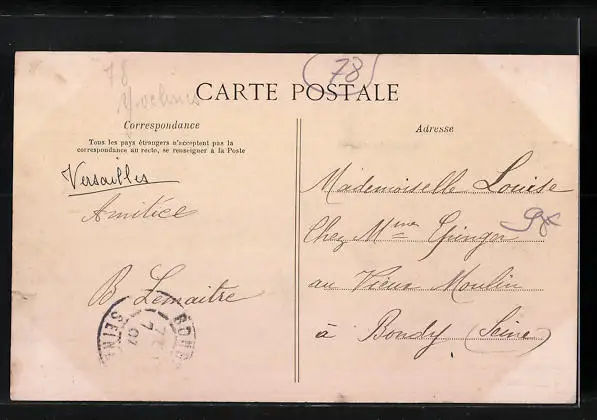 78
(78)
CARTE POSTALE
Correspondance
Tous les pays étrangers n'acceptent pas la
correspondance au recto, se renseigner à la Poste
Versailles
Amitiée
B Lemaitre
BON
SEINE
07
Adresse
Mademoiselle Louise
Chez Mme
au Vieux Moulin
à Bondy (Seine)